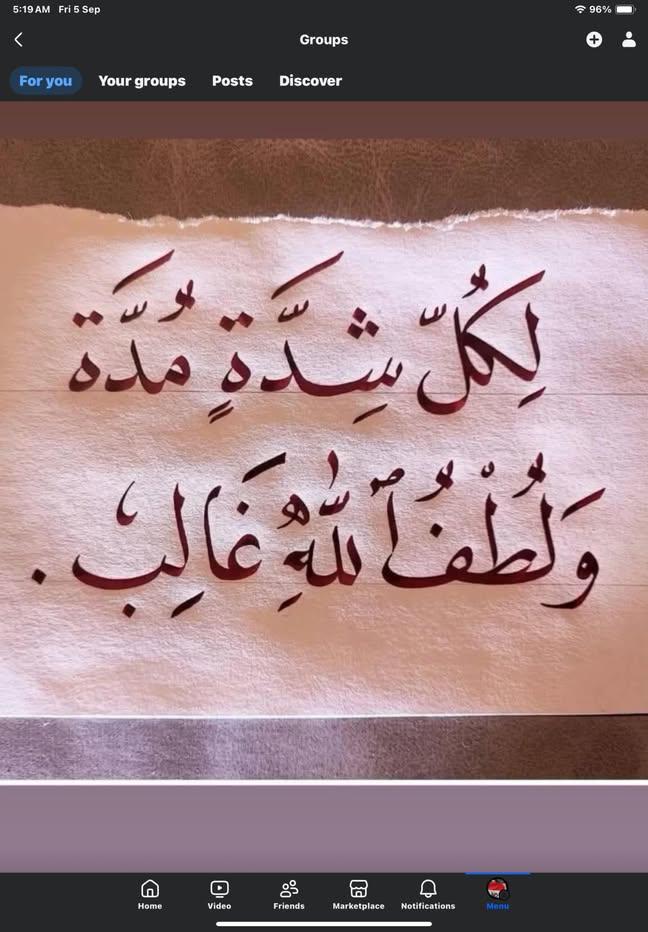 5:19 AM Fri 5 Sep 96%
Groups
For you Your groups Posts Discover
لِكُلِّ شِدَّةٍ مُدَّة
وَلُطْفُ ٱللَّهِ غَالِب.
Home Video Friends Marketplace Notifications Menu